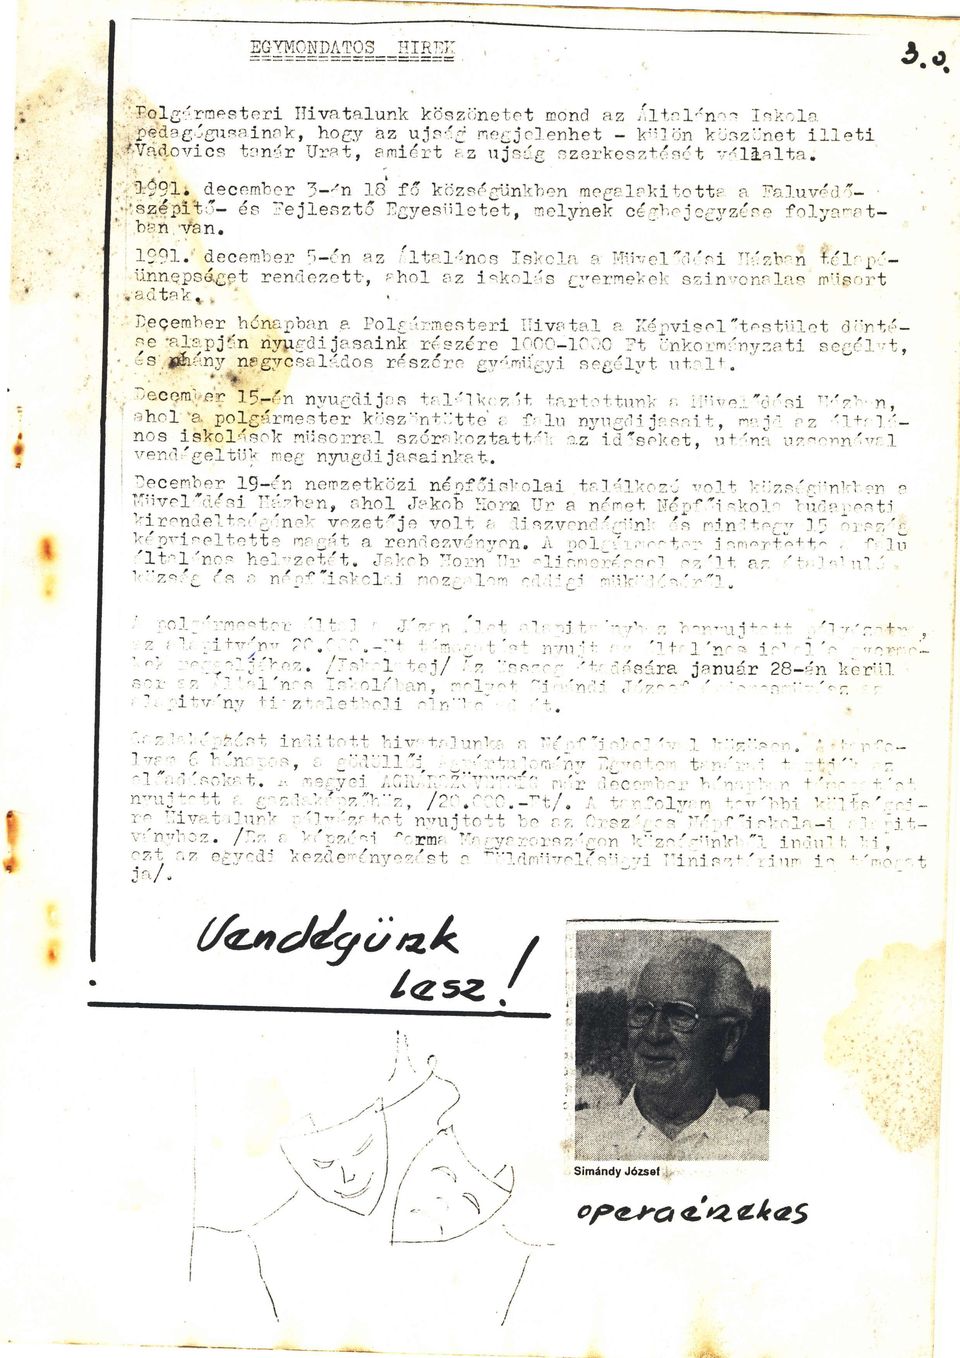 EGYMONDATOS HIREK
3.o.
Polgármesteri Hivatalunk köszönetet mond az Általános Iskola
pedagógusainak, hogy az ujság megjelenhet - külön köszönet illeti
Vadovics tanár Urat, amiért az ujság szerkesztését vállalta.
1991. december 3-án 18 fő községünkben megalakitotta a Faluvédő-
szépitő- és Fejlesztő Egyesületet, melynek cégbejegyzése folyamat-
ban van.
1991. december 5-én az Általános Iskola a Müvelődési Házban télapó-
ünnepséget rendezett, ahol az iskolás gyermekek szinvonalas müsort
adtak.
December hónapban a Polgármesteri Hivatal a Képviselőtestület dönté-
se alapján nyugdijasaink részére 1000-1000 Ft önkormányzati segélyt,
és néhány nagycsaládos részére gyámügyi segélyt utalt.
December 15-én nyugdijas találkozót tartottunk a Müvelődési Házban,
ahol a polgármester köszöntötte a falu nyugdijasait, majd az Általá-
nos iskolások müsorral szórakoztatták az időseket, utána uzsonnával
vendégeltük meg nyugdijasainkat.
December 19-én nemzetközi népfőiskolai találkozó volt községünkben a
Müvelődési Házban, ahol Jakob Horn Ur a német Népfőiskola budapesti
kirendeltségének vezetője volt a diszvendégünk és mindtegy 15 ország
képviseltette magát a rendezvényen. A polgármester ismertette a falu
általános helyzetét. Jakob Horn Ur elismeréssel szólt az átalakuló
község és a népfőiskolai mozgalom eddigi müködéséről.
A polgármester által a József alapitványhoz benyujtott pályázatra,
az alapitvány 20.000.-Ft támogatást nyujt az általános iskola gyerme-
kek reggelijéhez. /Iskolatej/ Az összeg átadására január 28-án kerül
sor az Általános Iskolában, melyet Simándi József operaénekes az
alapitvány tiszteletbeli elnöke ad át.
Gazdaképzést inditott hivatalunk a Népfőiskolával közösen. A tanfo-
lyam 6 hónapos, a gödüllői Agrártudomány Egyetem tanárai tartják az
előadásokat. A megyei AGRÁRSZÖVETSÉG már december hónapban támogatást
nyujtott a gazdaképzőhöz, /20.000.-Ft/. A tanfolyam további költségei-
re Hivatalunk pályázatot nyujtott be az Országos Népfőiskola-i alapit-
ványhoz. /Ez a képzési forma Magyarországon községünkből indult ki,
ezt az egyedi kezdeményezést a Földmüvelésügyi Minisztérium is támogat
ja/.
Vendégünk
lesz!
Simándy József
operaénekes